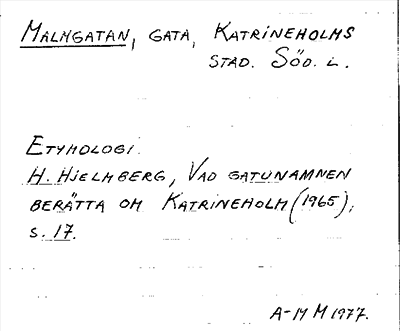 MALMGATAN, GATA, KATRINEHOLMS
STAD. SÖD. L.
ETYMOLOGI.
H. HJELMBERG, VAD GATUNAMNEN
BERÄTTA OM KATRINEHOLM (1965),
S. 17.
A-M M 1977.